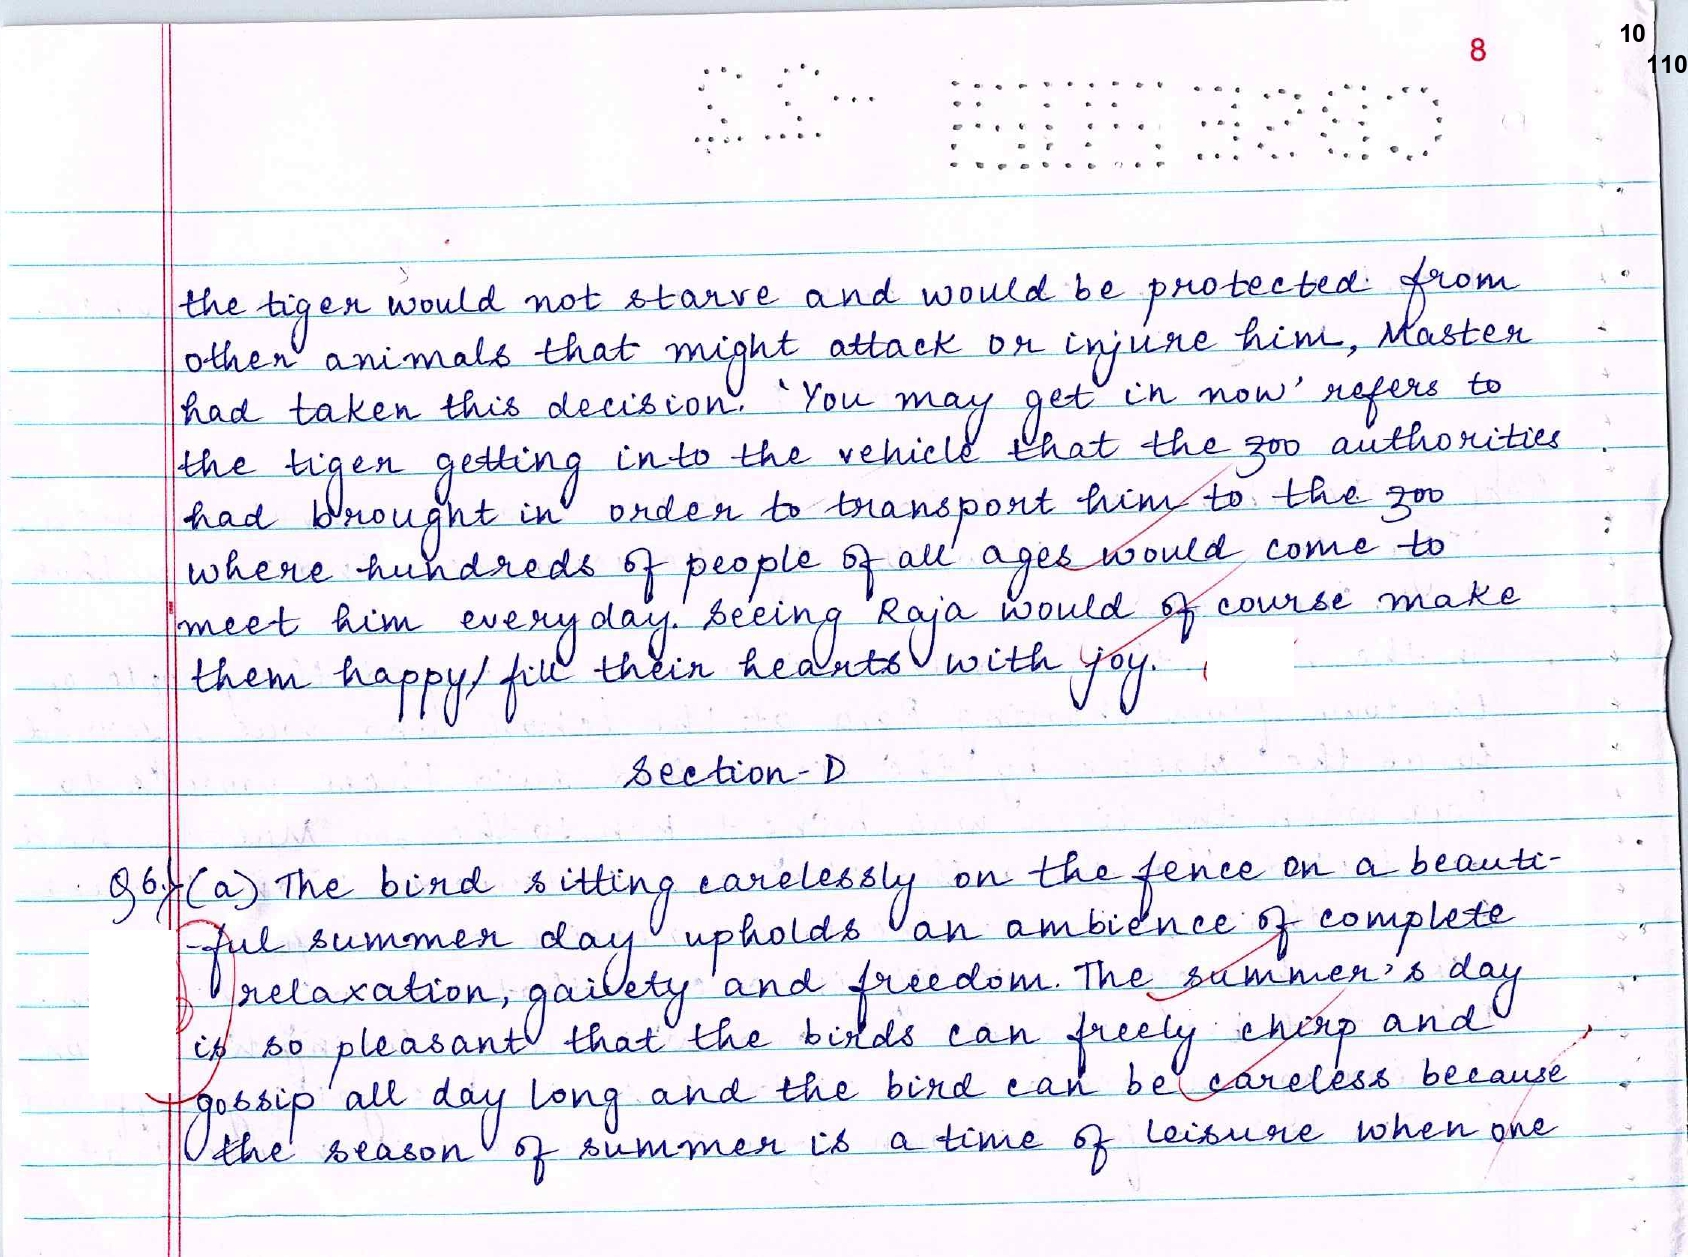 10
8
110
the tiger would not starve and would be protected from
other animals that might attack or injure him, Master
had taken this decision. 'You may get in now' refers to
the tiger getting into the vehicle that the zoo authorities
had brought in order to transport him to the zoo
where hundreds of people of all ages would come to
meet him everyday. Seeing Raja would of course make
them happy/ fill their hearts with joy.
Section-D
Q6. (a) The bird sitting carelessly on the fence on a beauti-
-ful summer day upholds an ambience of complete
relaxation, gaivety and freedom. The summer's day
is so pleasant that the birds can freely chirp and
gossip all day long and the bird can be careless because
the season of summer is a time of leisure when one